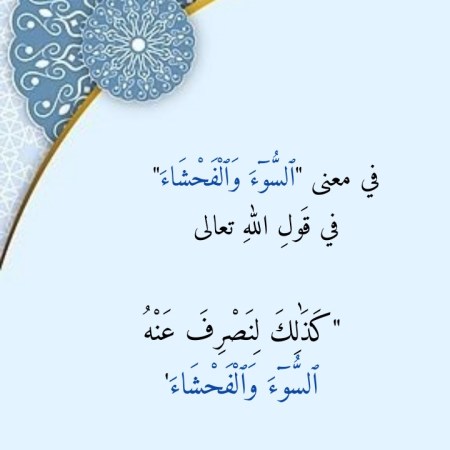 في معنى "ٱلسُّوٓءَ وَٱلْفَحْشَاءَ"
في قَولِ اللهِ تعالى
"كَذَٰلِكَ لِنَصْرِفَ عَنْهُ
ٱلسُّوٓءَ وَٱلْفَحْشَاءَ'